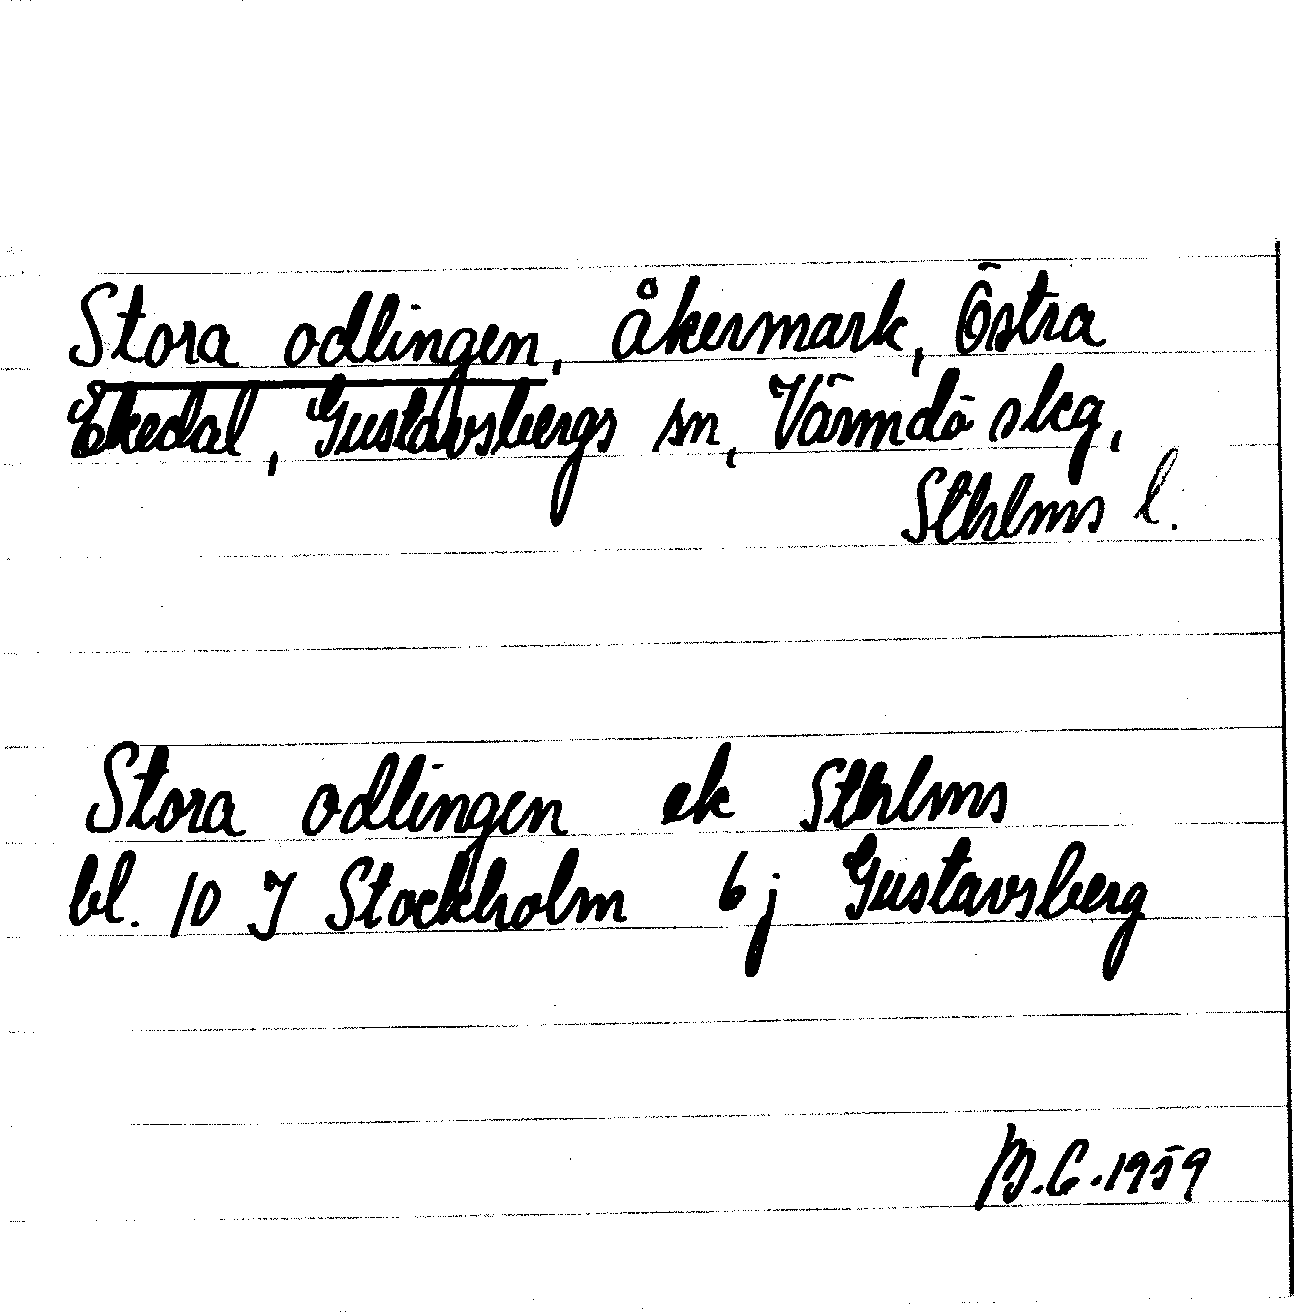 Stora odlingen, åkermark, Östra
Ekedal, Gustavsbergs sn, Värmdö skg,
Sthlms l.
Stora odlingen ek Sthlms
bl. 10 I Stockholm 6j Gustavsberg
B.G.1959